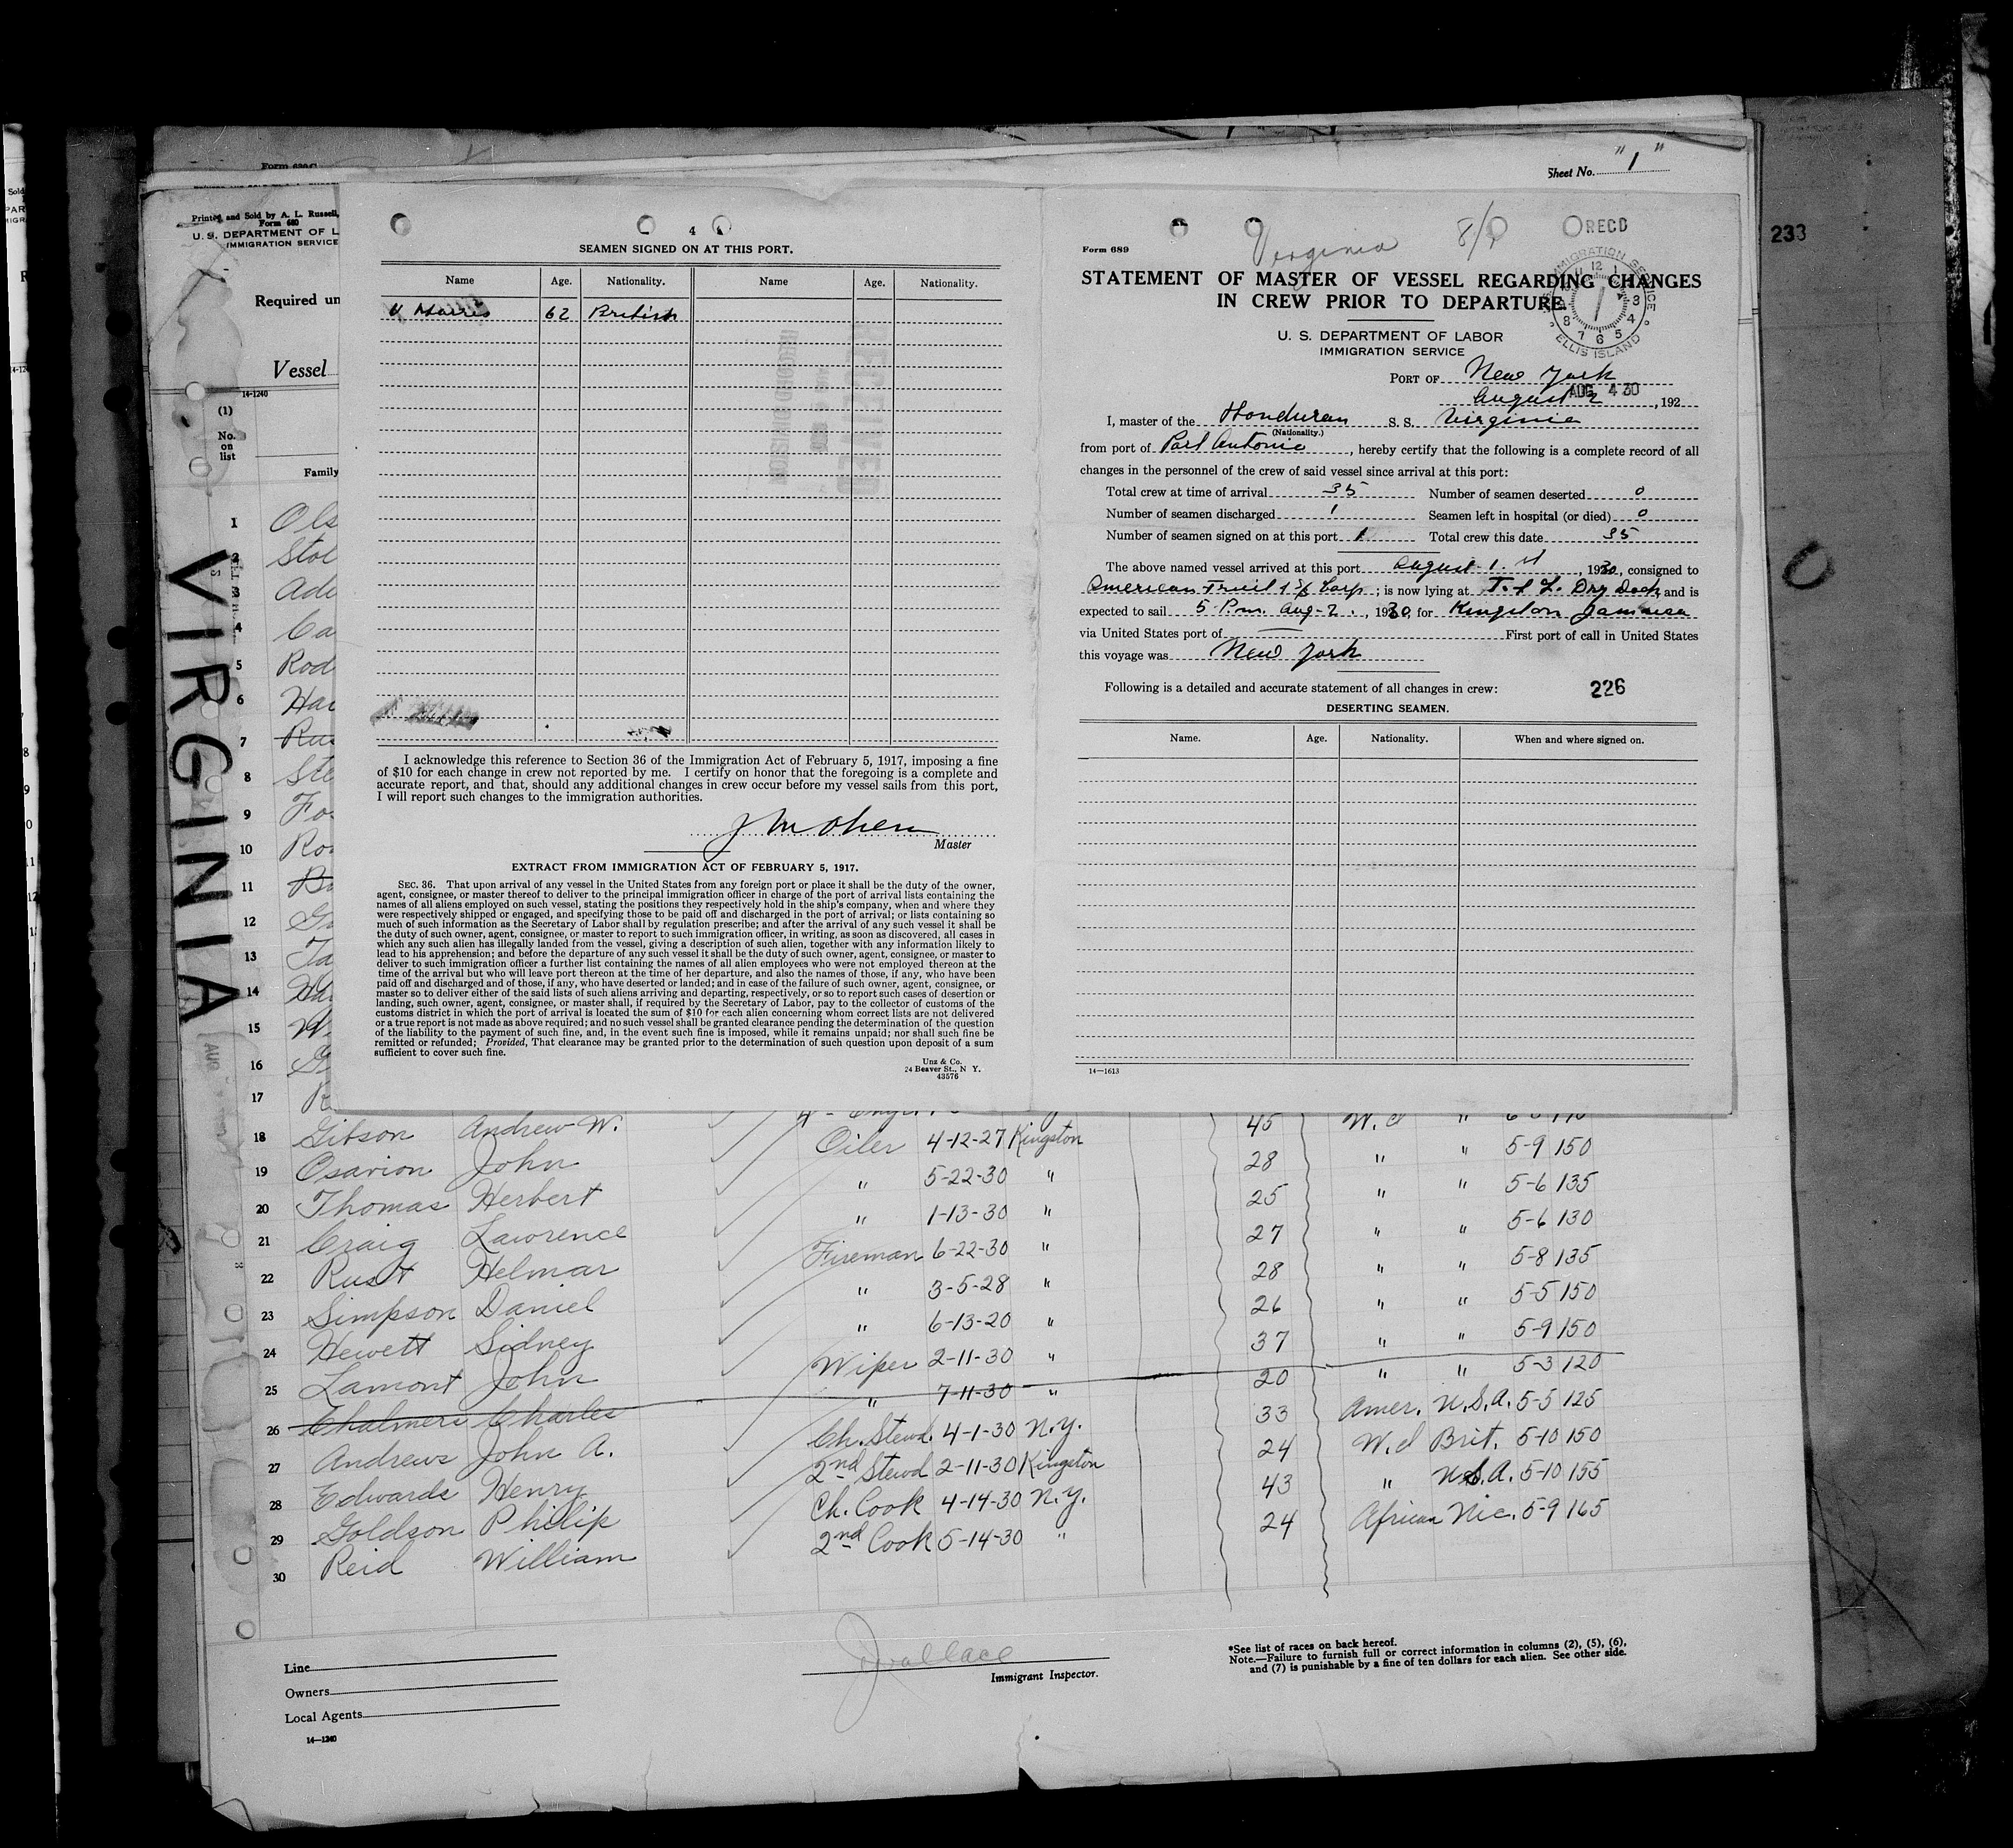 Sheet No. "1"
Printed and Sold by A. L. Russell,
Form 680
U. S. DEPARTMENT OF L
IMMIGRATION SERVICE
Required un
Vessel
14-1240
(1)
No.
on
list
Family
1 Ols
2 Stol
3 Ade
4 Ca
5 Rod
6 Har
7 Rus
8 Ste
9 Fos
10 Ro
11 B
12 G
13 Ta
14 Ha
15 W
16 G
17 R
VIRGINIA
4
SEAMEN SIGNED ON AT THIS PORT.
Name Age. Nationality. Name Age. Nationality.
V Harris 62 British
I acknowledge this reference to Section 36 of the Immigration Act of February 5, 1917, imposing a fine
of $10 for each change in crew not reported by me. I certify on honor that the foregoing is a complete and
accurate report, and that, should any additional changes in crew occur before my vessel sails from this port,
I will report such changes to the immigration authorities.
Master
EXTRACT FROM IMMIGRATION ACT OF FEBRUARY 5, 1917.
SEC. 36. That upon arrival of any vessel in the United States from any foreign port or place it shall be the duty of the owner,
agent, consignee, or master thereof to deliver to the principal immigration officer in charge of the port of arrival lists containing the
names of all aliens employed on such vessel, stating the positions they respectively hold in the ship's company, when and where they
were respectively shipped or engaged, and specifying those to be paid off and discharged in the port of arrival; or lists containing so
much of such information as the Secretary of Labor shall by regulation prescribe; and after the arrival of any such vessel it shall be
the duty of such owner, agent, consignee, or master to report to such immigration officer, in writing, as soon as discovered, all cases in
which any such alien has illegally landed from the vessel, giving a description of such alien, together with any information likely to
lead to his apprehension; and before the departure of any such vessel it shall be the duty of such owner, agent, consignee, or master to
deliver to such immigration officer a further list containing the names of all alien employees who were not employed thereon at the
time of the arrival but who will leave port thereon at the time of her departure, and also the names of those, if any, who have been
paid off and discharged and of those, if any, who have deserted or landed; and in case of the failure of such owner, agent, consignee, or
master so to deliver either of the said lists of such aliens arriving and departing, respectively, or so to report such cases of desertion or
landing, such owner, agent, consignee, or master shall, if required by the Secretary of Labor, pay to the collector of customs of the
customs district in which the port of arrival is located the sum of $10 for each alien concerning whom correct lists are not delivered
or a true report is not made as above required; and no such vessel shall be granted clearance pending the determination of the question
of the liability to the payment of such fine, and, in the event such fine is imposed, while it remains unpaid; nor shall such fine be
remitted or refunded; Provided, That clearance may be granted prior to the determination of such question upon deposit of a sum
sufficient to cover such fine.
Unz & Co.
24 Beaver St., N Y.
43576
Form 689
Virginia 8/1
RECD
233
STATEMENT OF MASTER OF VESSEL REGARDING CHANGES
IN CREW PRIOR TO DEPARTURE
IMMIGRATION SERVICE
ELLIS ISLAND
U. S. DEPARTMENT OF LABOR
IMMIGRATION SERVICE
PORT OF New York
August 2, 192
AUG 4 30
I, master of the Honduran S. S. Virginia
(Nationality.)
from port of Port Antonio, hereby certify that the following is a complete record of all
changes in the personnel of the crew of said vessel since arrival at this port:
Total crew at time of arrival 35 Number of seamen deserted 0
Number of seamen discharged 1 Seamen left in hospital (or died) 0
Number of seamen signed on at this port 1 Total crew this date 35
The above named vessel arrived at this port August 1st, 1930, consigned to
American Fruit & SS Corp; is now lying at T. & L. Dry Dock and is
expected to sail 5 P.m. Aug-2., 1930, for Kingston Jamaica
via United States port of First port of call in United States
this voyage was New York
Following is a detailed and accurate statement of all changes in crew:
226
DESERTING SEAMEN.
Name. Age. Nationality. When and where signed on.
14—1613
18 Gibson Andrew W. Oiler 4-12-27 Kingston 45 W. I " 
19 Osarion John " 5-22-30 " 28 " " 5-9 150
20 Thomas Herbert " 1-13-30 " 25 " " 5-6 135
21 Craig Lawrence Fireman 6-22-30 " 27 " " 5-6 130
22 Rust Helmar " 3-5-28 " 28 " " 5-8 135
23 Simpson Daniel " 6-13-20 " 26 " " 5-5 150
24 Hewett Sidney Wiper 2-11-30 " 37 " " 5-9 150
25 Lamont John " 7-11-30 " 20 " " 5-3 120
26 Chalmers Charles Ch. Stewd. 4-1-30 N.Y. 33 Amer. U.S.A. 5-5 125
27 Andrews John A. 2nd Stewd 2-11-30 Kingston 24 W. I Brit. 5-10 150
28 Edwards Henry Ch. Cook 4-14-30 N.Y. 43 " U.S.A. 5-10 155
29 Goldson Philip 2nd Cook 5-14-30 " 24 African Nic. 5-9 165
30 Reid William
Line
Owners
Local Agents
14—1240
J Wallace
Immigrant Inspector.
*See list of races on back hereof.
Note.—Failure to furnish full or correct information in columns (2), (5), (6),
and (7) is punishable by a fine of ten dollars for each alien. See other side.